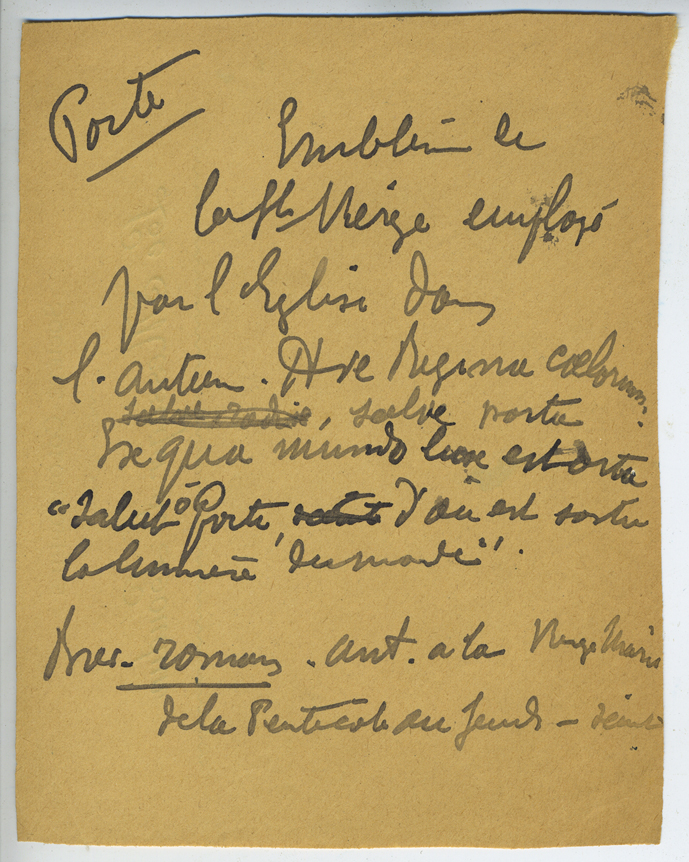 Porte
Emblème de
la Ste Vierge employé
par l'Eglise dans
l'antien. Ave Regina cœlorum:
salve radix, salve porta
Ex qua mundo lux est orta
"Salut ô Porte, d'où est sortie
la lumière du monde".
Brev. romain. ant. a la Vierge Marie
de la Pentecôte au Jeudi-saint